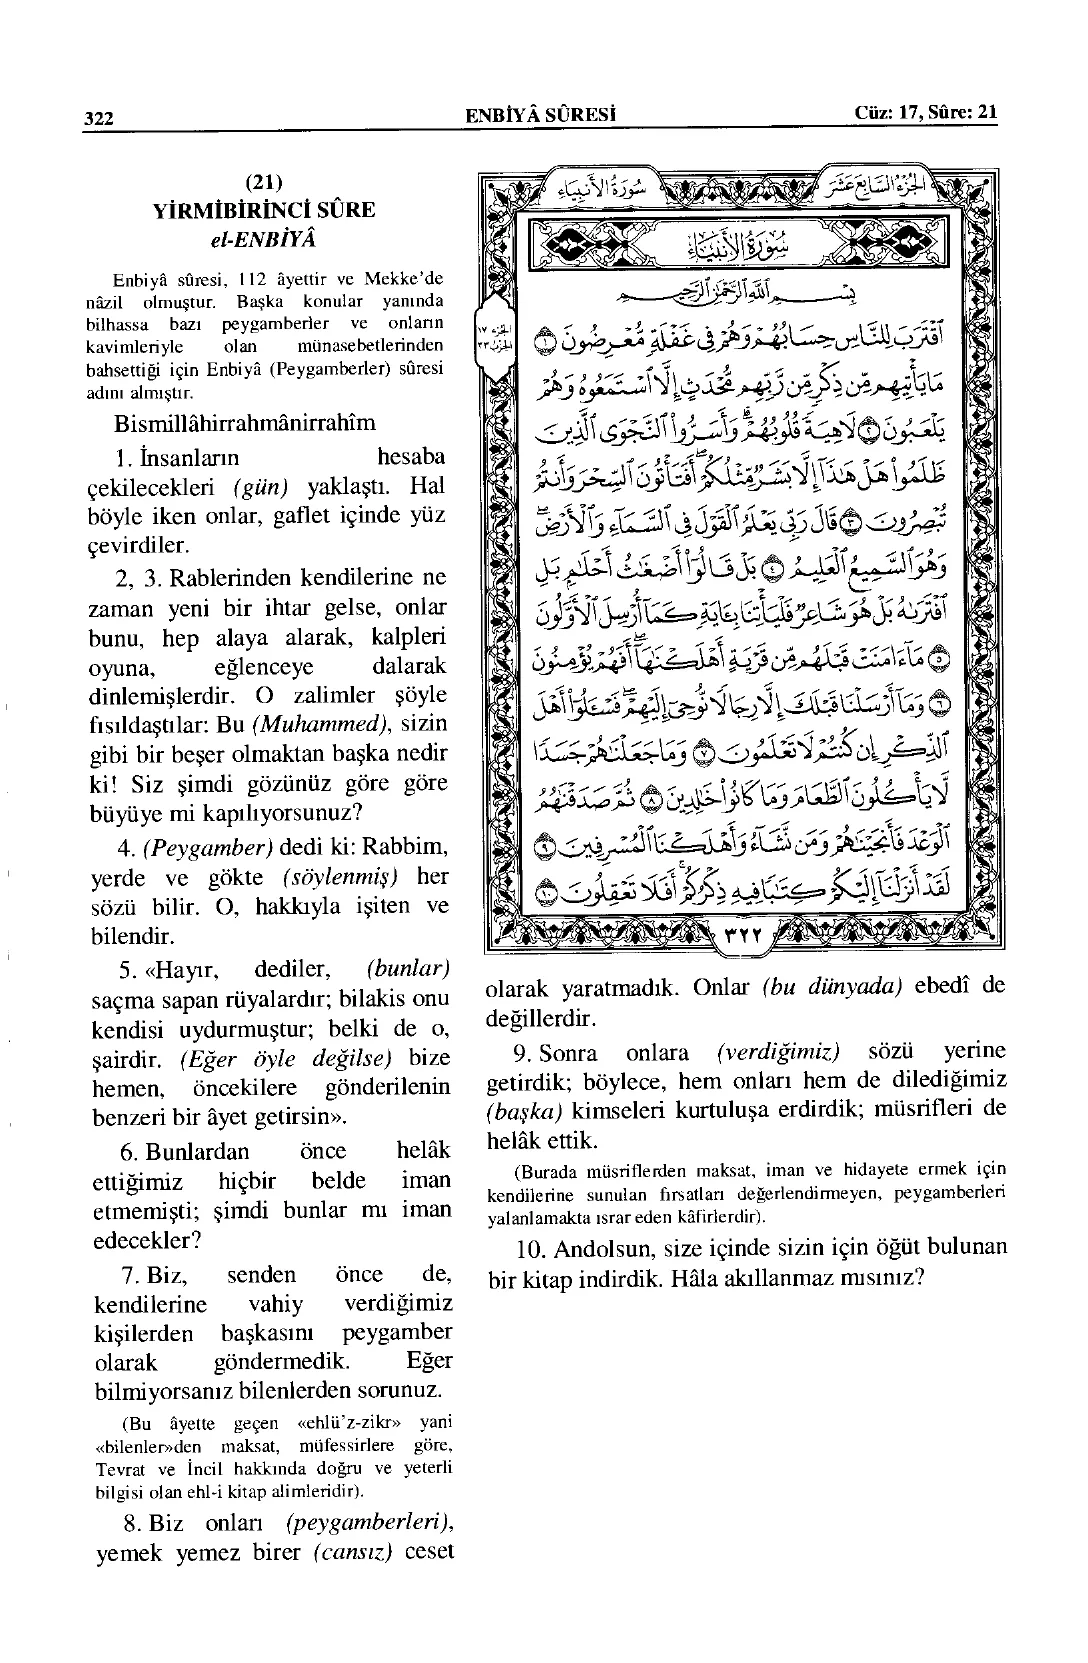 322
ENBİYÂ SÛRESİ
Cüz: 17, Sûre: 21
(21)
YİRMİBİRİNCİ SÛRE
el-ENBİYÂ
Enbiyâ sûresi, 112 âyettir ve Mekke'de
nâzil olmuştur. Başka konular yanında
bilhassa bazı peygamberler ve onların
kavimleriyle olan münasebetlerinden
bahsettiği için Enbiyâ (Peygamberler) sûresi
adını almıştır.
Bismillâhirrahmânirrahîm
1. İnsanların hesaba
çekilecekleri (gün) yaklaştı. Hal
böyle iken onlar, gaflet içinde yüz
çevirdiler.
2, 3. Rablerinden kendilerine ne
zaman yeni bir ihtar gelse, onlar
bunu, hep alaya alarak, kalpleri
oyuna, eğlenceye dalarak
dinlemişlerdir. O zalimler şöyle
fısıldaştılar: Bu (Muhammed), sizin
gibi bir beşer olmaktan başka nedir
ki! Siz şimdi gözünüz göre göre
büyüye mi kapılıyorsunuz?
4. (Peygamber) dedi ki: Rabbim,
yerde ve gökte (söylenmiş) her
sözü bilir. O, hakkıyla işiten ve
bilendir.
5. «Hayır, dediler, (bunlar)
saçma sapan rüyalardır; bilakis onu
kendisi uydurmuştur; belki de o,
şairdir. (Eğer öyle değilse) bize
hemen, öncekilere gönderilenin
benzeri bir âyet getirsin».
6. Bunlardan önce helâk
ettiğimiz hiçbir belde iman
etmemişti; şimdi bunlar mı iman
edecekler?
7. Biz, senden önce de,
kendilerine vahiy verdiğimiz
kişilerden başkasını peygamber
olarak göndermedik. Eğer
bilmiyorsanız bilenlerden sorunuz.
(Bu âyette geçen «ehlü'z-zikr» yani
«bilenler»den maksat, müfessirlere göre,
Tevrat ve İncil hakkında doğru ve yeterli
bilgisi olan ehl-i kitap alimleridir).
8. Biz onları (peygamberleri),
yemek yemez birer (cansız) ceset
الجزء السابع عشر
سورة الأنبياء
سورة الأنبياء
بسم الله الرحمن الرحيم
الجزء ١٧
اقْتَرَبَ لِلنَّاسِ حِسَابُهُمْ وَهُمْ فِي غَفْلَةٍ مُعْرِضُونَ ١
مَا يَأْتِيهِم مِّن ذِكْرٍ مِّن رَّبِّهِم مُّحْدَثٍ إِلَّا اسْتَمَعُوهُ وَهُمْ
يَلْعَبُونَ ٢ لَاهِيَةً قُلُوبُهُمْ وَأَسَرُّوا النَّجْوَى الَّذِينَ
ظَلَمُوا هَلْ هَٰذَا إِلَّا بَشَرٌ مِّثْلُكُمْ أَفَتَأْتُونَ السِّحْرَ وَأَنتُمْ
تُبْصِرُونَ ٣ قَالَ رَبِّي يَعْلَمُ الْقَوْلَ فِي السَّمَاءِ وَالْأَرْضِ
وَهُوَ السَّمِيعُ الْعَلِيمُ ٤ بَلْ قَالُوا أَضْغَاثُ أَحْلَامٍ بَلِ
افْتَرَاهُ بَلْ هُوَ شَاعِرٌ فَلْيَأْتِنَا بِآيَةٍ كَمَا أُرْسِلَ الْأَوَّلُونَ
٥ مَا آمَنَتْ قَبْلَهُم مِّن قَرْيَةٍ أَهْلَكْنَاهَا أَفَهُمْ يُؤْمِنُونَ
٦ وَمَا أَرْسَلْنَا قَبْلَكَ إِلَّا رِجَالًا نُّوحِي إِلَيْهِمْ فَسْئَلُوا أَهْلَ
الذِّكْرِ إِن كُنتُمْ لَا تَعْلَمُونَ ٧ وَمَا جَعَلْنَاهُمْ جَسَدًا
لَّا يَأْكُلُونَ الطَّعَامَ وَمَا كَانُوا خَالِدِينَ ٨ ثُمَّ صَدَقْنَاهُمُ
الْوَعْدَ فَأَنجَيْنَاهُمْ وَمَن نَّشَاءُ وَأَهْلَكْنَا الْمُسْرِفِينَ ٩
لَقَدْ أَنزَلْنَا إِلَيْكُمْ كِتَابًا فِيهِ ذِكْرُكُمْ أَفَلَا تَعْقِلُونَ ١٠
٣٢٢
olarak yaratmadık. Onlar (bu dünyada) ebedî de
değillerdir.
9. Sonra onlara (verdiğimiz) sözü yerine
getirdik; böylece, hem onları hem de dilediğimiz
(başka) kimseleri kurtuluşa erdirdik; müsrifleri de
helâk ettik.
(Burada müsriflerden maksat, iman ve hidayete ermek için
kendilerine sunulan fırsatları değerlendirmeyen, peygamberleri
yalanlamakta ısrar eden kâfirlerdir).
10. Andolsun, size içinde sizin için öğüt bulunan
bir kitap indirdik. Hâla akıllanmaz mısınız?